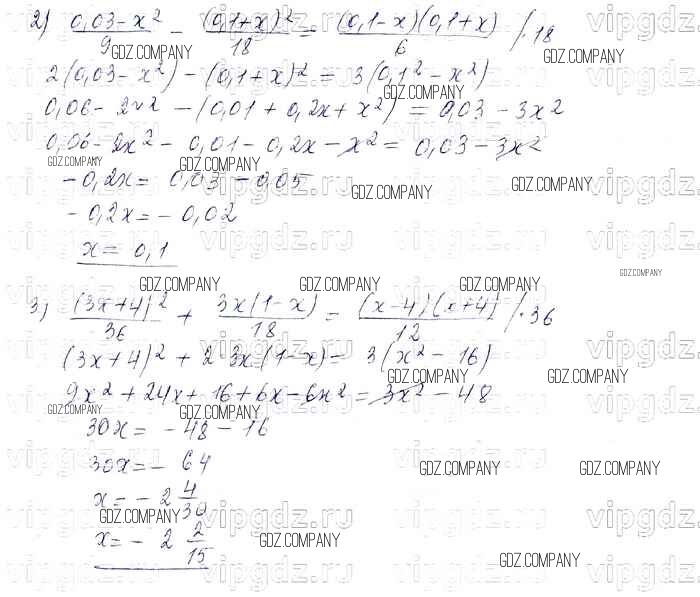 2) (0,03-x²)/9 - (0,1+x)²/18 = (0,1-x)(0,1+x)/6 /·18
2(0,03-x²)-(0,1+x)²=3(0,1²-x²)
0,06-2x²-(0,01+0,2x+x²)=0,03-3x2
0,06-2x²-0,01-0,2x-x²=0,03-3x2
-0,2x=0,03-0,05
-0,2x=-0,02
x=0,1
3) (3x+4)²/36 + 3x(1-x)/18 = (x-4)(x+4)/12 /·36
(3x+4)²+2·3x(1-x)=3(x²-16)
9x²+24x+16+6x-6x²=3x²-48
30x=-48-16
30x=-64
x=-2 4/30
x=-2 2/15
vipgdz.ru
GDZ.COMPANY